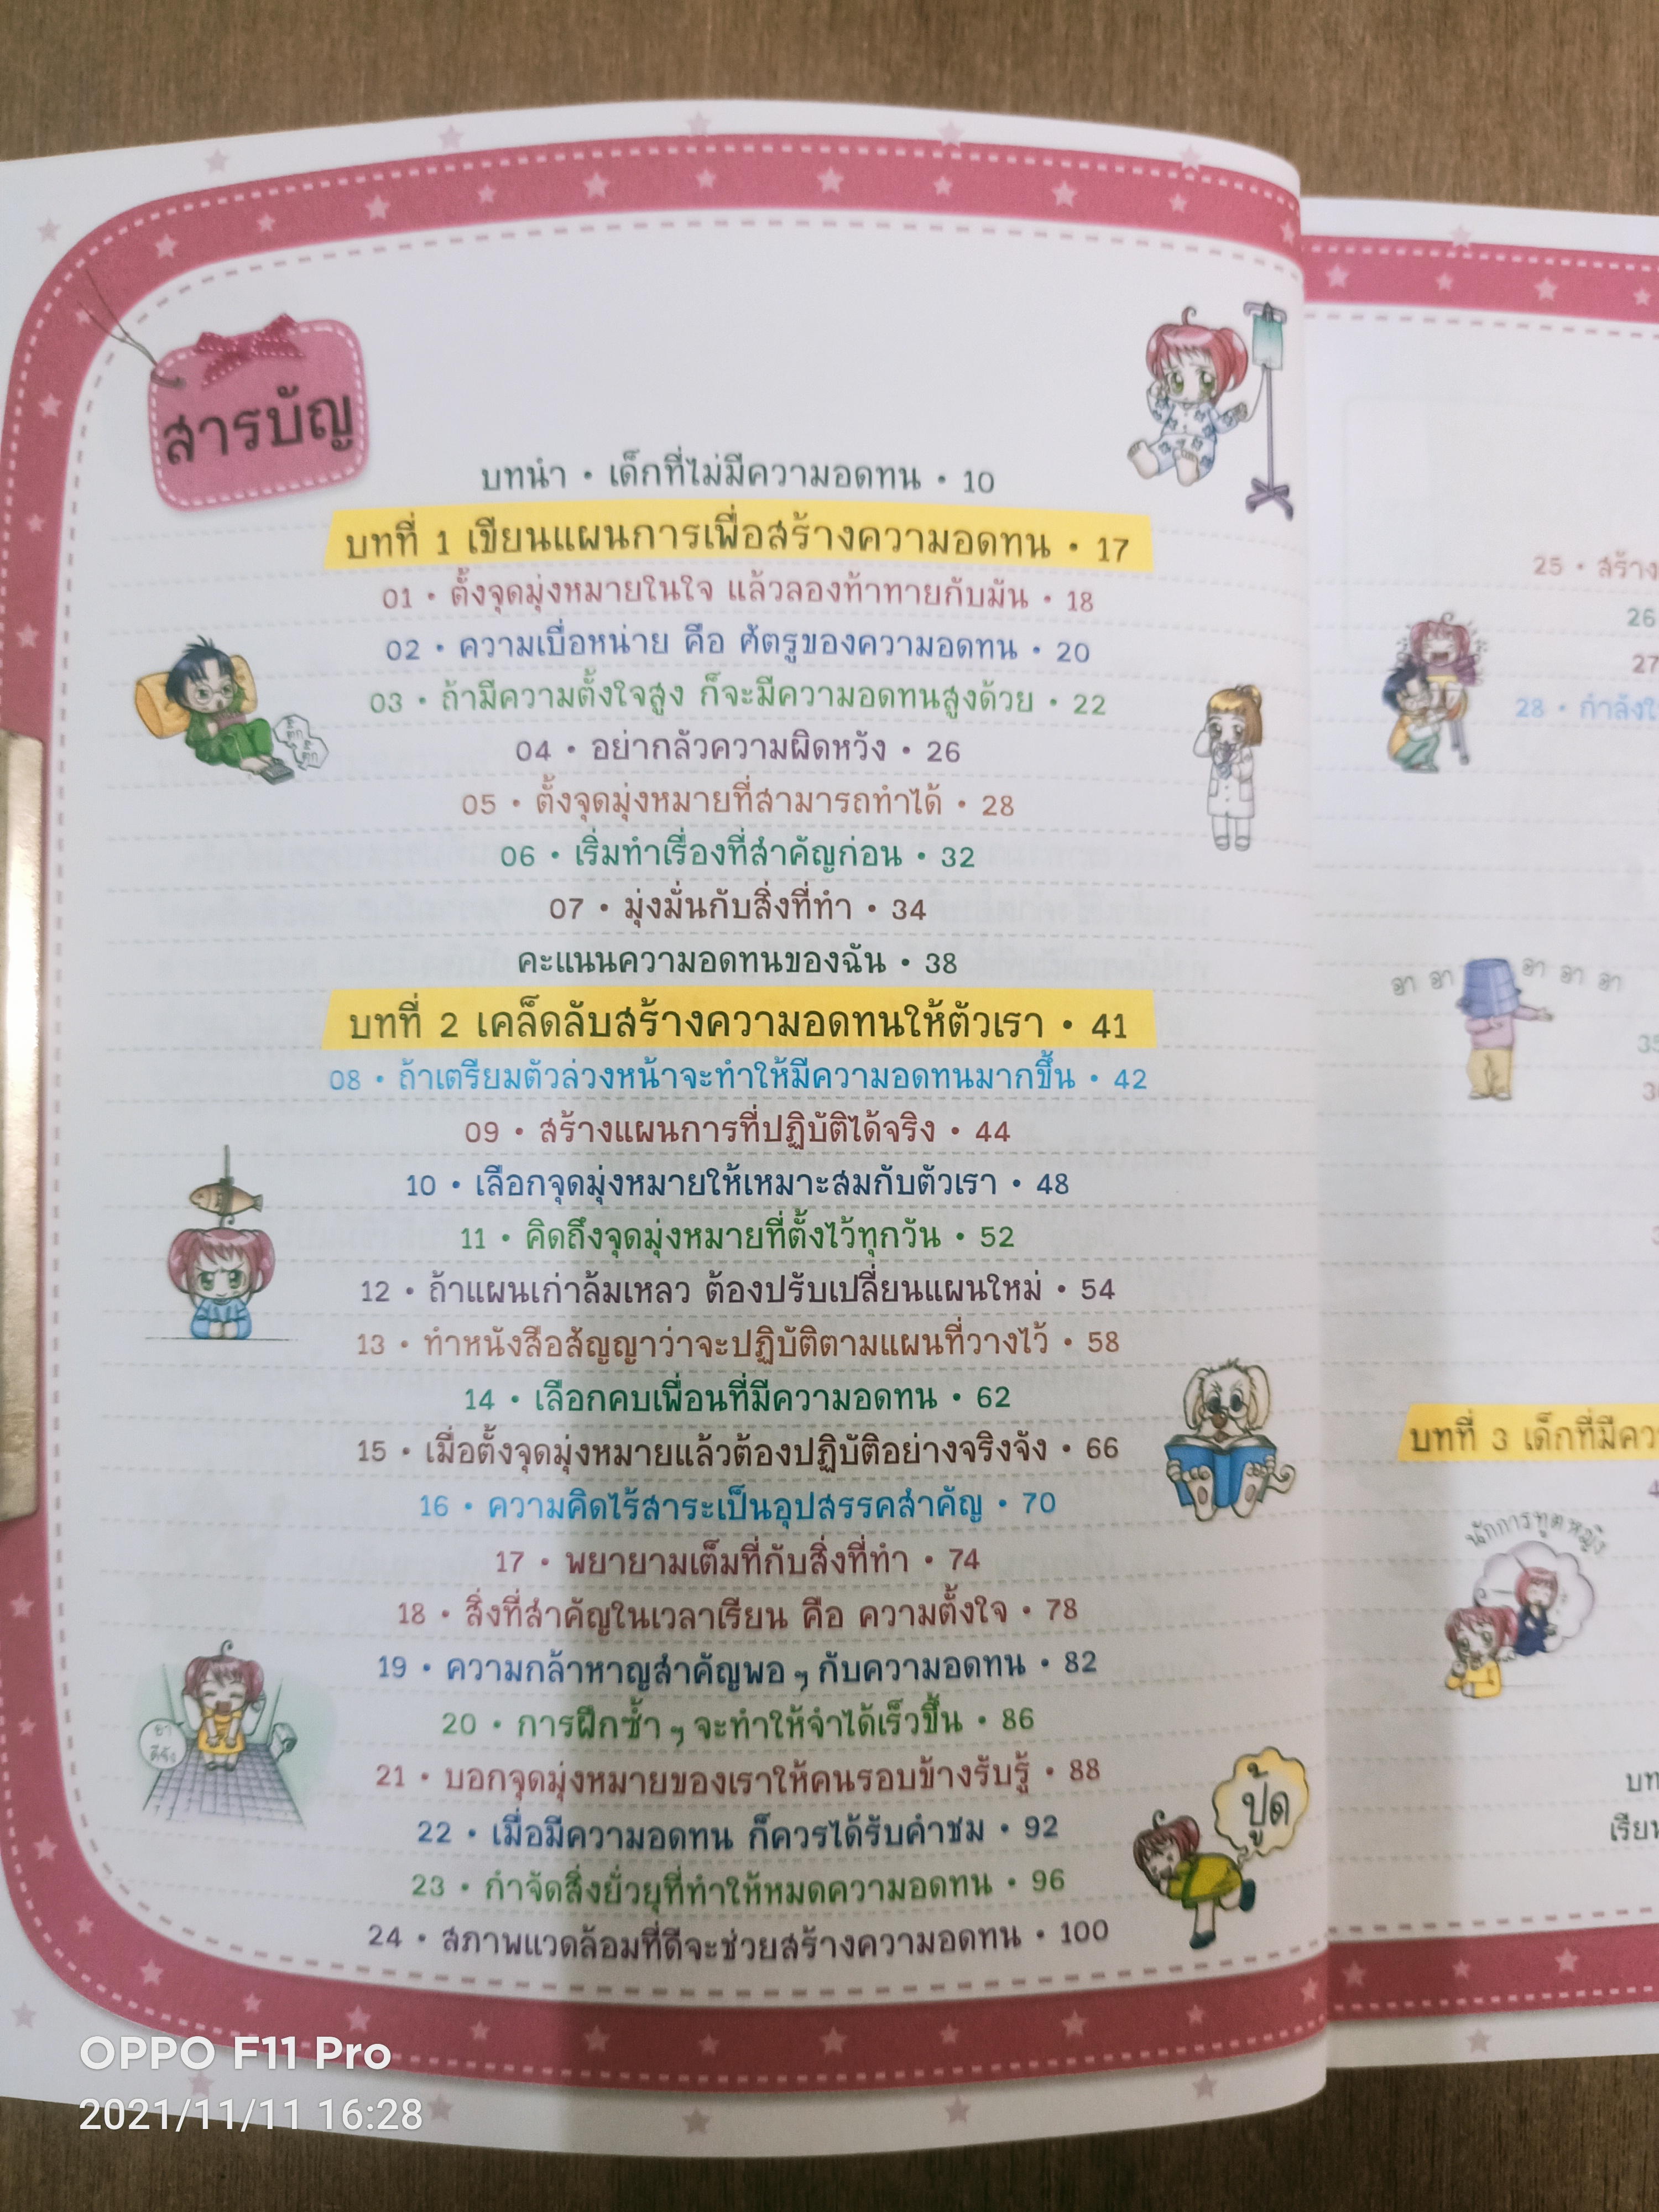 สารบัญ
บทนำ • เด็กที่ไม่มีความอดทน • 10
บทที่ 1 เขียนแผนการเพื่อสร้างความอดทน • 17
01 • ตั้งจุดมุ่งหมายในใจ แล้วลองท้าทายกับมัน • 18
02 • ความเบื่อหน่าย คือ ศัตรูของความอดทน • 20
03 • ถ้ามีความตั้งใจสูง ก็จะมีความอดทนสูงด้วย • 22
04 • อย่ากลัวความผิดหวัง • 26
05 • ตั้งจุดมุ่งหมายที่สามารถทำได้ • 28
06 • เริ่มทำเรื่องที่สำคัญก่อน • 32
07 • มุ่งมั่นกับสิ่งที่ทำ • 34
คะแนนความอดทนของฉัน • 38
บทที่ 2 เคล็ดลับสร้างความอดทนให้ตัวเรา • 41
08 • ถ้าเตรียมตัวล่วงหน้าจะทำให้มีความอดทนมากขึ้น • 42
09 • สร้างแผนการที่ปฏิบัติได้จริง • 44
10 • เลือกจุดมุ่งหมายให้เหมาะสมกับตัวเรา • 48
11 • คิดถึงจุดมุ่งหมายที่ตั้งไว้ทุกวัน • 52
12 • ถ้าแผนเก่าล้มเหลว ต้องปรับเปลี่ยนแผนใหม่ • 54
13 • ทำหนังสือสัญญาว่าจะปฏิบัติตามแผนที่วางไว้ • 58
14 • เลือกคบเพื่อนที่มีความอดทน • 62
15 • เมื่อตั้งจุดมุ่งหมายแล้วต้องปฏิบัติอย่างจริงจัง • 66
16 • ความคิดไร้สาระเป็นอุปสรรคสำคัญ • 70
17 • พยายามเต็มที่กับสิ่งที่ทำ • 74
18 • สิ่งที่สำคัญในเวลาเรียน คือ ความตั้งใจ • 78
19 • ความกล้าหาญสำคัญพอ ๆ กับความอดทน • 82
20 • การฝึกซ้ำ ๆ จะทำให้จำได้เร็วขึ้น • 86
21 • บอกจุดมุ่งหมายของเราให้คนรอบข้างรับรู้ • 88
22 • เมื่อมีความอดทน ก็ควรได้รับคำชม • 92
23 • กำจัดสิ่งยั่วยุที่ทำให้หมดความอดทน • 96
24 • สภาพแวดล้อมที่ดีจะช่วยสร้างความอดทน • 100
ปู้ด
25 • สร้าง
26
27
28 • กำลังใ
อา อา อา อา อา
35
บทที่ 3 เด็กที่มีคว
นักการทูตหญิง
บท
เรียน
OPPO F11 Pro
2021/11/11 16:28